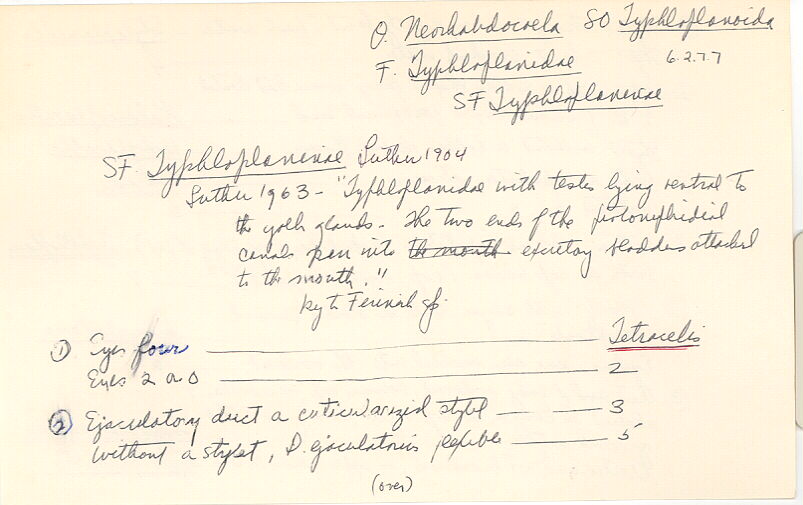 O. Neorhabdocoela SO Typhloplanoida
F. Typhloplanidae 6.2.7.7
SF Typhloplaninae
SF Typhloplaninae Luther 1904
Luther 1963 - "Typhloplanidae with testes lying ventral to
the yolk glands. The two ends of the protonephridial
canals open into the mouth excretory bladder attached
to the mouth."
Key to
① Eyes four Tetracelis
Eyes 2 or 0 2
② Ejaculatory duct a cuticularized stylet 3
Without a stylet, D. ejaculatorius 5
(over)